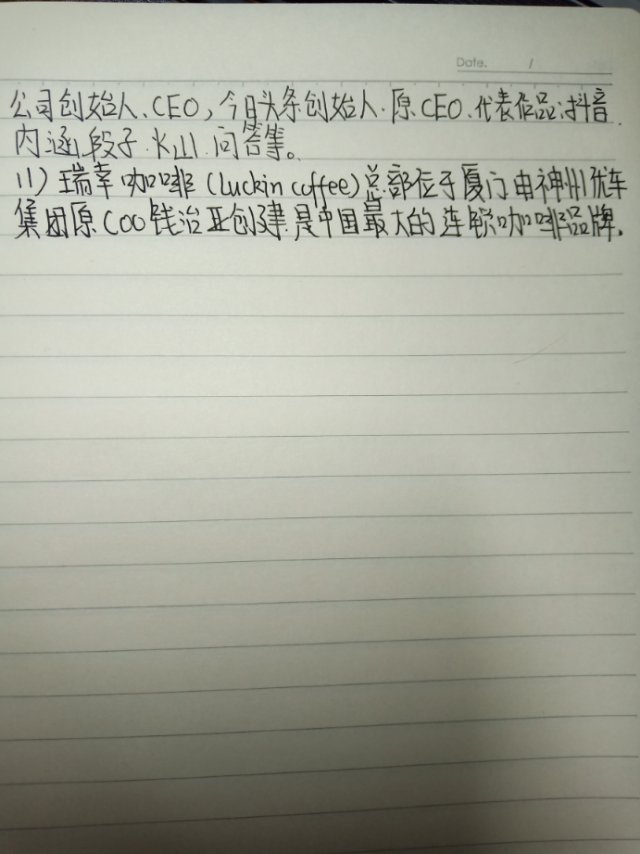 Date. /
公司创始人、CEO,今日头条创始人.原CEO.代表作品:抖音.
内涵段子.火山.问答等。
11)瑞幸咖啡(luckin coffee)总部位于厦门由神州优车
集团原COO钱治亚创建.是中国最大的连锁咖啡品牌.